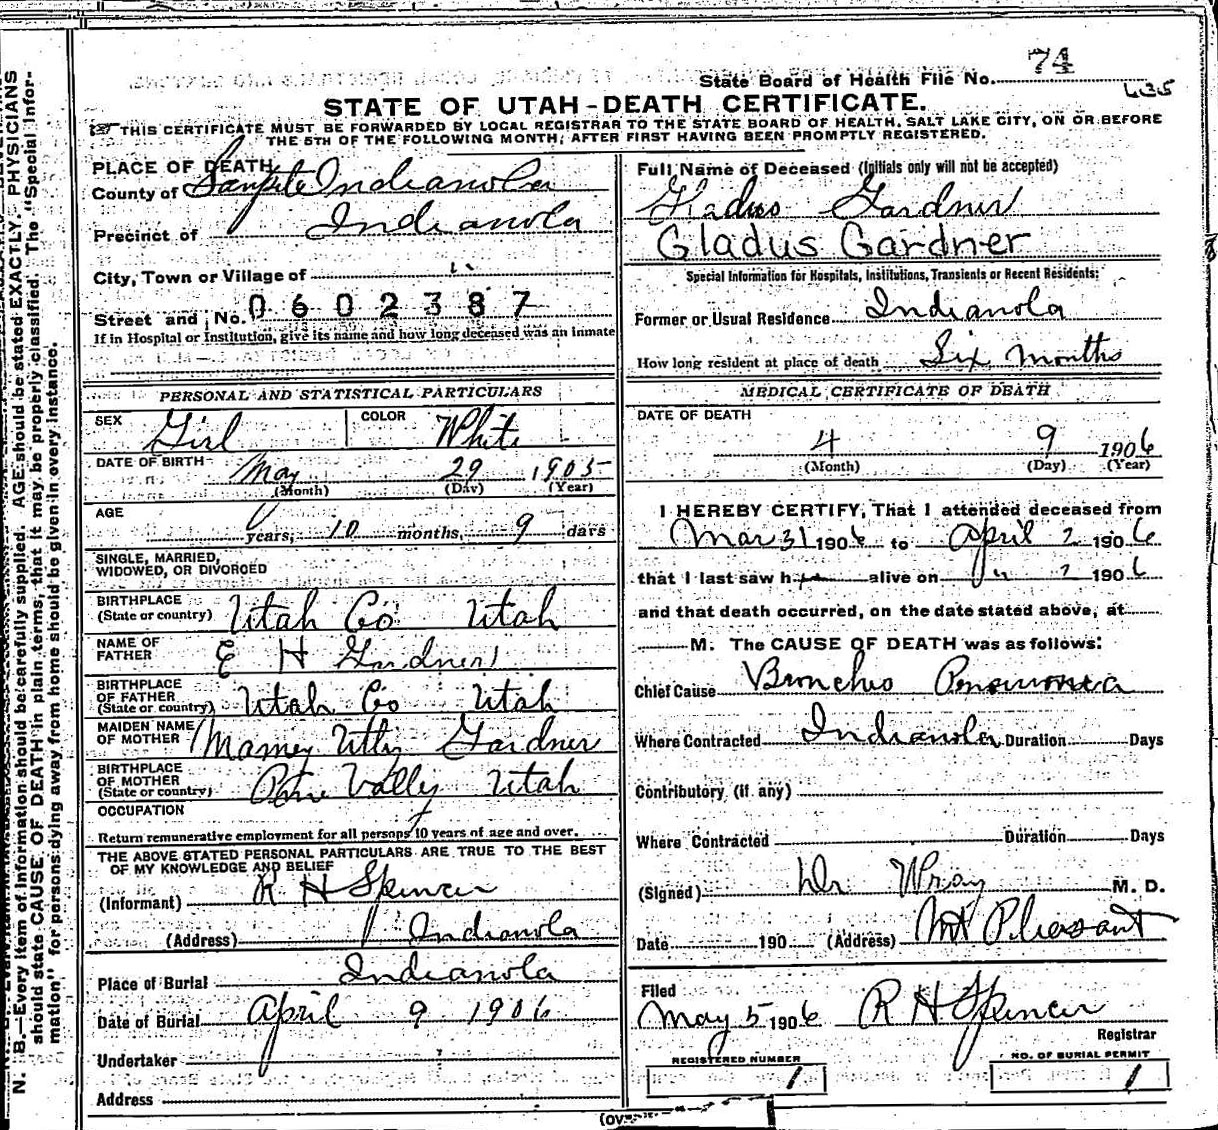 State Board of Health File No. 74
635
STATE OF UTAH-DEATH CERTIFICATE.
THIS CERTIFICATE MUST BE FORWARDED BY LOCAL REGISTRAR TO THE STATE BOARD OF HEALTH, SALT LAKE CITY, ON OR BEFORE
THE 5TH OF THE FOLLOWING MONTH, AFTER FIRST HAVING BEEN PROMPTLY REGISTERED.
PLACE OF DEATH
County of Sanpete Indianola
Precinct of Indianola
City, Town or Village of "
Street and No. 0602387
If in Hospital or Institution, give its name and how long deceased was an inmate
PERSONAL AND STATISTICAL PARTICULARS
SEX Girl COLOR White
DATE OF BIRTH May 29 1905
(Month) (Day) (Year)
AGE
0 years, 10 months, 9 days
SINGLE, MARRIED,
WIDOWED, OR DIVORCED
BIRTHPLACE
(State or country) Utah Co Utah
NAME OF
FATHER E H Gardner
BIRTHPLACE
OF FATHER
(State or country) Utah Co Utah
MAIDEN NAME
OF MOTHER Mamey Gardner
BIRTHPLACE
OF MOTHER
(State or country) Vally Utah
OCCUPATION
Return remunerative employment for all persons 10 years of age and over.
THE ABOVE STATED PERSONAL PARTICULARS ARE TRUE TO THE BEST
OF MY KNOWLEDGE AND BELIEF
(Informant) R H Spencer
(Address) Indianola
Place of Burial Indianola
Date of Burial April 9 1906
Undertaker
Address
Full Name of Deceased (Initials only will not be accepted)
Gladus Gardner
Gladus Gardner
Special Information for Hospitals, Institutions, Transients or Recent Residents:
Former or Usual Residence Indianola
How long resident at place of death Six months
MEDICAL CERTIFICATE OF DEATH
DATE OF DEATH
4 9 1906
(Month) (Day) (Year)
I HEREBY CERTIFY, That I attended deceased from
Mar 31 1906 to April 2 1906
that I last saw her alive on " 2 1906
and that death occurred, on the date stated above, at
M. The CAUSE OF DEATH was as follows:
Chief Cause Bronchio
Where Contracted Indianola Duration Days
Contributory (if any)
Where Contracted Duration Days
(Signed) Dr Wray M. D.
Date 190 (Address) Mt Pleasant
Filed
May 5 1906 R H Spencer
Registrar
REGISTERED NUMBER
1
NO. OF BURIAL PERMIT
1
(over
N. B.—Every item of information should be carefully supplied. AGE should be stated EXACTLY. PHYSICIANS
should state CAUSE OF DEATH in plain terms, that it may be properly classified. The "Special Infor-
mation" for persons dying away from home should be given in every instance.